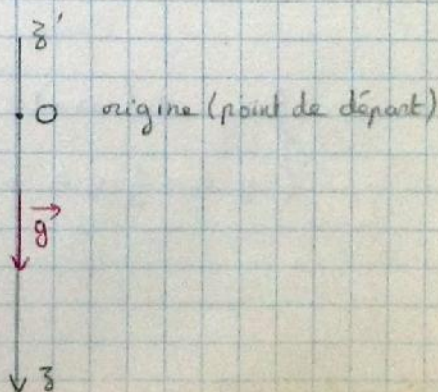 z'
O origine (point de départ)
g
z